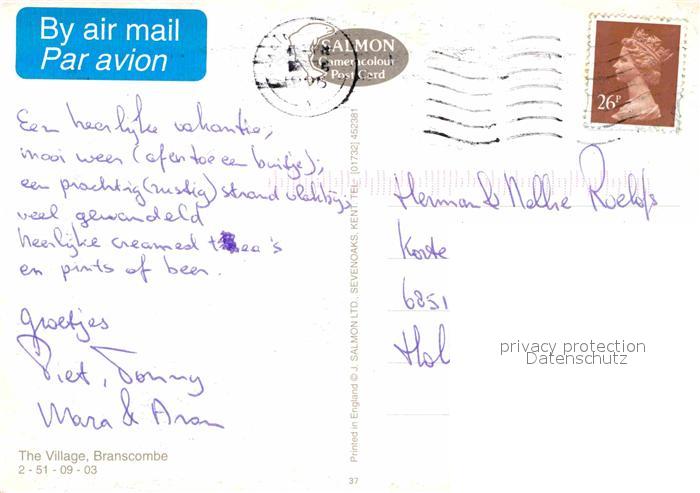 By air mail
Par avion
SALMON
Cameracolour
Post Card
26P
Een heerlijke vakantie,
mooi weer (af en toe een buitje),
een prachtig (rustig) strand vlakbij,
veel gewandeld
heerlijke creamed tea's
en pints of beer.
groetjes
Piet, Tonny
Mara & Aran
The Village, Branscombe
2 - 51 - 09 - 03
Printed in England © J. SALMON LTD., SEVENOAKS, KENT TEL: (01732) 452381
37
Herman & Nellie Roelofs
Korte
6851
Hol
privacy protection
Datenschutz